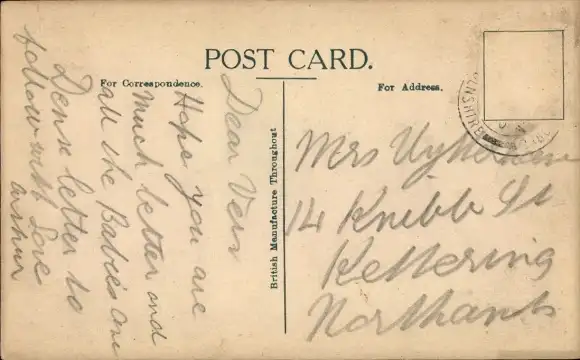 POST CARD.
For Correspondence.
For Address.
British Manufacture Throughout
Dear Vera
Hope you are
much better and
all the Babies are
Dense letter to
follow with Love
Arthur
Mrs
14 Knibb St
Kettering
Northants